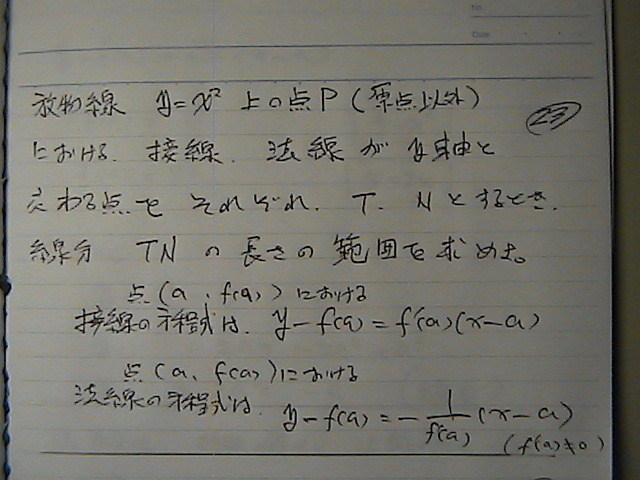 No.
Date
放物線 y=x² 上の点P(原点以外)
23
における. 接線. 法線がy軸と
交わる点をそれぞれ. T. Nとするとき.
線分 TNの長さの範囲を求めよ。
点(a, f(a))における
接線の方程式は. y-f(a)=f'(a)(x-a)
点(a, f(a))における
法線の方程式は. y-f(a)=-\frac{1}{f'(a)}(x-a)
(f'(a)≠0)